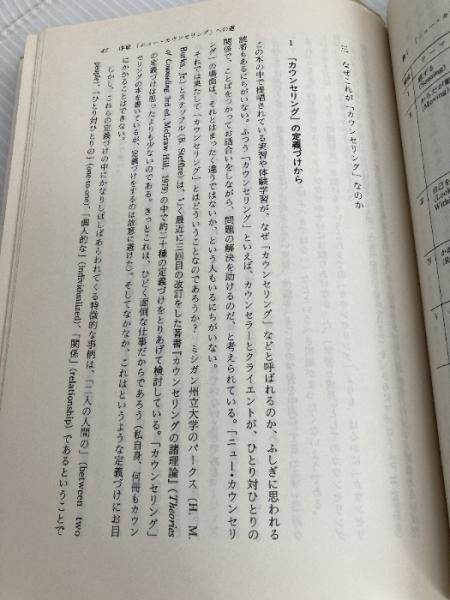 47　序章　「ニュー・カウンセリング」への道
三　なぜこれが「カウンセリング」なのか
1　「カウンセリング」の定義づけから
この本の中で提唱されている実習や体験学習が、なぜ「カウンセリング」などと呼ばれるのか、ふしぎに思われる
読者もあるにちがいない。ふつう「カウンセリング」といえば、カウンセラーとクライエントが、ひとり対ひとりの
関係で、ことばをつかってお話合いをしながら、問題の解決を助けるのだ、と考えられている。「ニュー・カウンセリ
ング」の場面は、それとはまったく違うではないか、という人もいるにちがいない。
それでは果たして「カウンセリング」とはどういうことなのであろうか？　ミシガン州立大学のバークス（H. M.
Burks, Jr.）とステッフル（B. Stefflre）は、ごく最近に三回目の改訂をした著書『カウンセリングの諸理論』（Theories
of Counseling 3rd ed., McGraw Hill, 1979）の中で約二十種の定義づけをとりあげて検討している。「カウンセリング」
の定義づけは思ったよりも少ないのである。きっとこれは、ひどく面倒な仕事だからであろう（私自身、何冊もカウン
セリングの本を書いているが、定義づけをするのは故意に避けた）。そしてなかなか、これはというような定義づけにお目
にかかることができない。
しかし、これらの定義づけの中にかなりしばしばあらわれてくる特徴的な事柄は、「二人の人間の」（between two
people）、「ひとり対ひとりの」（one-to-one）、「個人的な」（individualized）、「関係」（relationship）であるということで